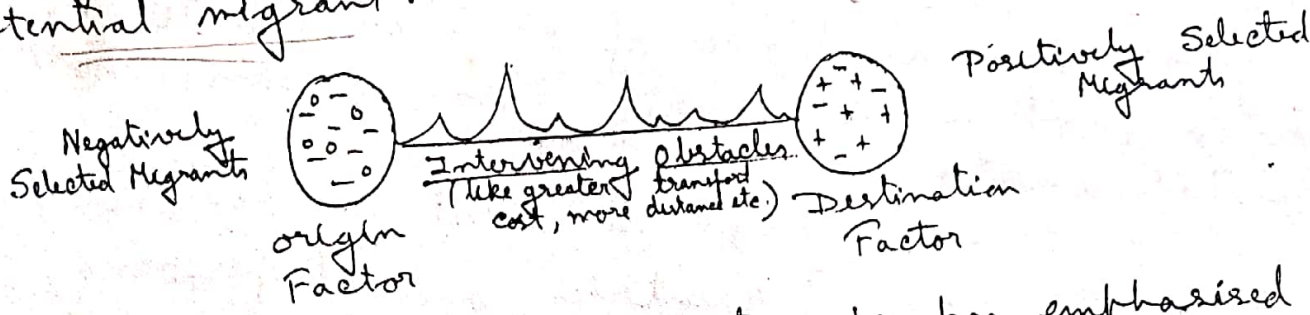 tential migrant
Positively Selected
Migrants
Negatively
Selected Migrants
Intervening Obstacles
(like greater transport
cost, more distance etc.)
Origin
Factor
Destination
Factor
has emphasised